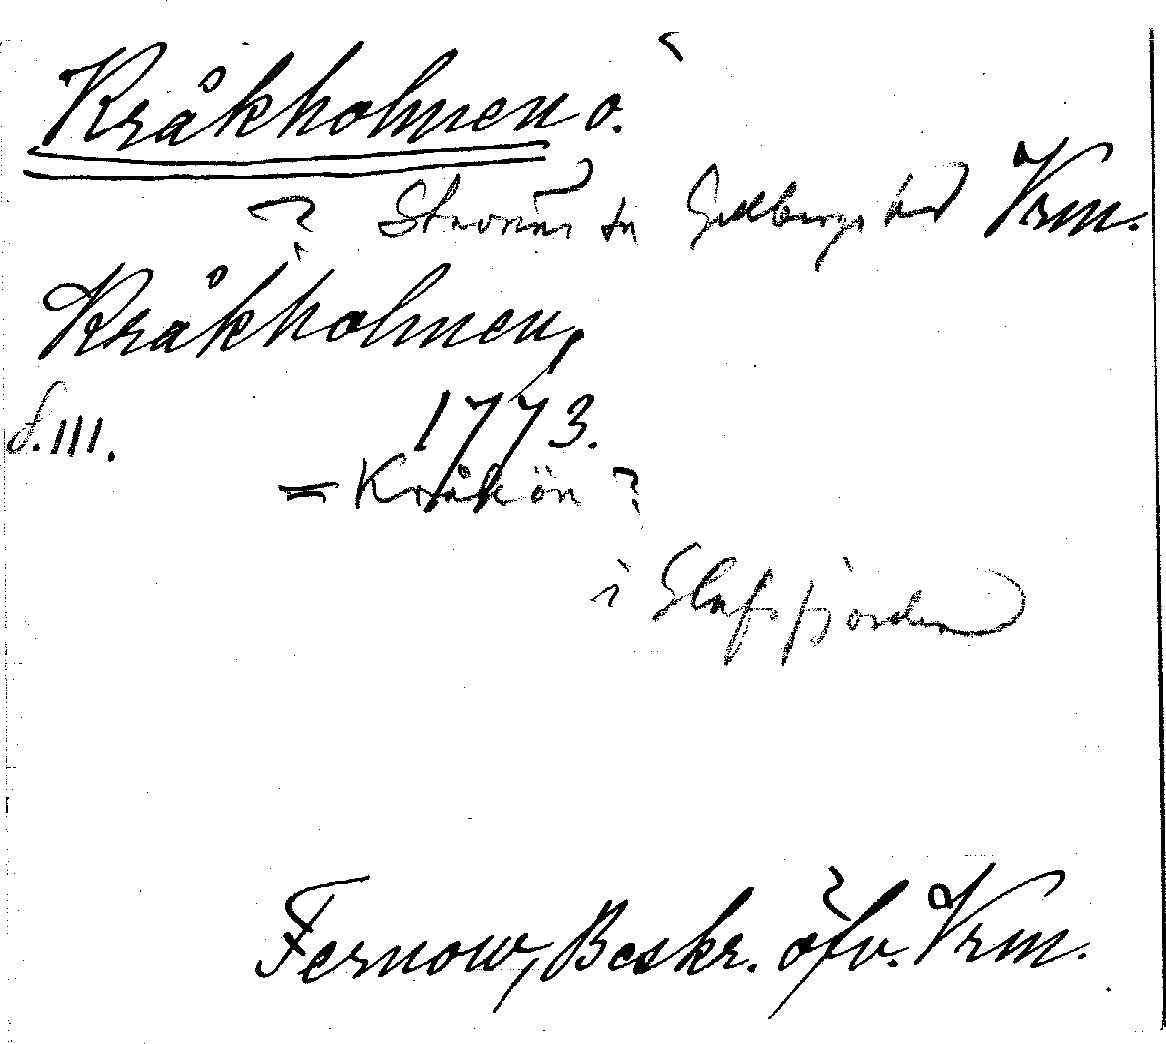 Kråkholmen ö.
? Stavnäs sn Gillbergs hd Vrm.
Kråkholmen,
S. 111. 1773.
= Kråkön ?
i Glafsfjorden
Fernow, Beskr. öfv. Vrm.